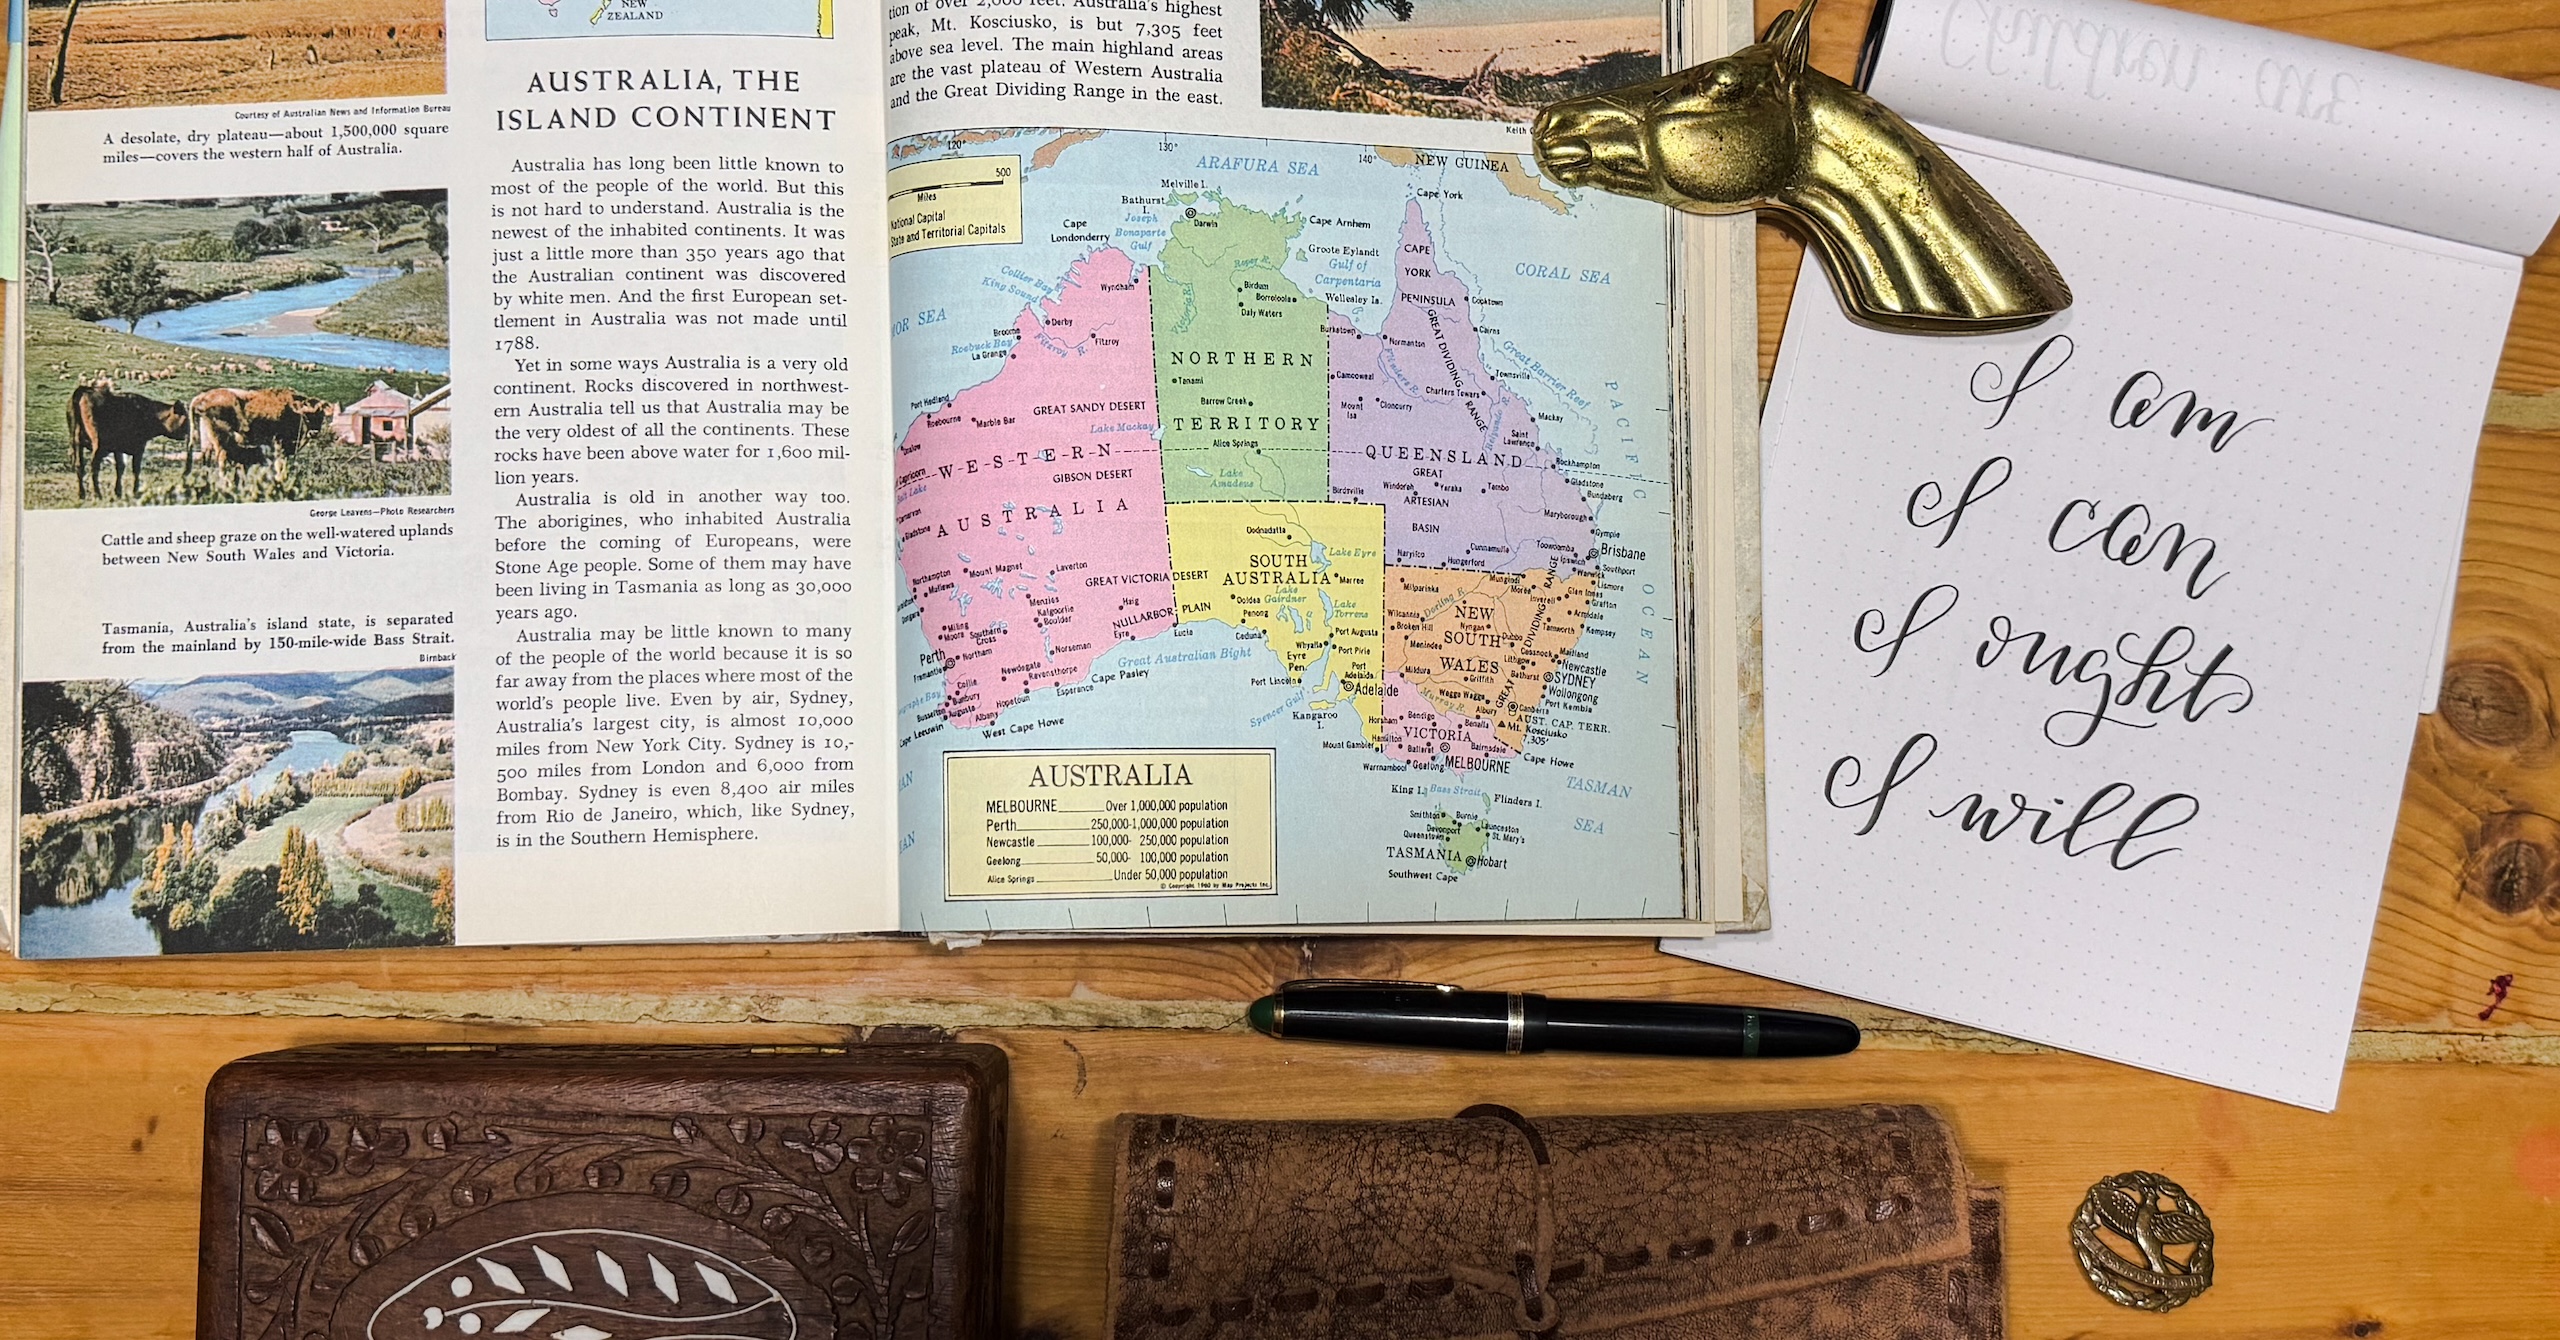 NEW
ZEALAND
Courtesy of Australian News and Information Bureau
A desolate, dry plateau—about 1,500,000 square
miles—covers the western half of Australia.
George Leavens—Photo Researchers
Cattle and sheep graze on the well-watered uplands
between New South Wales and Victoria.
Tasmania, Australia's island state, is separated
from the mainland by 150-mile-wide Bass Strait.
Birnback
AUSTRALIA, THE
ISLAND CONTINENT
Australia has long been little known to
most of the people of the world. But this
is not hard to understand. Australia is the
newest of the inhabited continents. It was
just a little more than 350 years ago that
the Australian continent was discovered
by white men. And the first European set-
tlement in Australia was not made until
1788.
Yet in some ways Australia is a very old
continent. Rocks discovered in northwest-
ern Australia tell us that Australia may be
the very oldest of all the continents. These
rocks have been above water for 1,600 mil-
lion years.
Australia is old in another way too.
The aborigines, who inhabited Australia
before the coming of Europeans, were
Stone Age people. Some of them may have
been living in Tasmania as long as 30,000
years ago.
Australia may be little known to many
of the people of the world because it is so
far away from the places where most of the
world's people live. Even by air, Sydney,
Australia's largest city, is almost 10,000
miles from New York City. Sydney is 10,-
500 miles from London and 6,000 from
Bombay. Sydney is even 8,400 air miles
from Rio de Janeiro, which, like Sydney,
is in the Southern Hemisphere.
tion of over 2,000 feet. Australia's highest
peak, Mt. Kosciusko, is but 7,305 feet
above sea level. The main highland areas
are the vast plateau of Western Australia
and the Great Dividing Range in the east.
Keith
120°
130°
140°
ARAFURA SEA
NEW GUINEA
500
Miles
National Capital
State and Territorial Capitals
Melville I.
Bathurst
I.
Darwin
Joseph
Bonaparte
Gulf
Cape
Londonderry
Cape Arnhem
Groote Eylandt
Gulf of
Carpentaria
Wellesley Is.
Cape York
CAPE
YORK
PENINSULA
CORAL SEA
Collier Bay
King Sound
Wyndham
Derby
Broome
Roebuck Bay
La Grange
Fitzroy R.
Fitzroy
Victoria R.
Roper R.
Birdum
Borroloola
Daly Waters
Burketown
Normanton
Cooktown
Cairns
Great Barrier Reef
GREAT DIVIDING RANGE
Flinders R.
Townsville
Charters Towers
Belyando R.
Mackay
Saint
Lawrence
PACIFIC
OCEAN
Port Hedland
Roebourne
Marble Bar
Onslow
GREAT SANDY DESERT
Lake Mackay
NORTHERN
Tanami
Barrow Creek
TERRITORY
Alice Springs
Lake
Amadeus
Camooweal
Mount
Isa
Cloncurry
QUEENSLAND
GREAT
ARTESIAN
BASIN
Birdsville
Windorah
Yaraka
Tambo
Rockhampton
Gladstone
Bundaberg
Maryborough
Gympie
Brisbane
Toowoomba
Ipswich
Southport
Warwick
Cunnamulla
Hungerford
WESTERN
GIBSON DESERT
AUSTRALIA
Carnarvon
Gladstone
Northampton
Mount Magnet
Laverton
Mullewa
GREAT VICTORIA DESERT
Menzies
Kalgoorlie
Boulder
Haig
NULLARBOR PLAIN
Eyre
Eucla
Miling
Moora
Southern
Cross
Perth
Northam
Fremantle
Norseman
Newdegate
Ravensthorpe
Great Australian Bight
Cape Pasley
Esperance
Hopetoun
Collie
Bunbury
Busselton
Augusta
Albany
Cape Leeuwin
West Cape Howe
Oodnadatta
SOUTH
AUSTRALIA
Lake Eyre
Marree
Lake
Gairdner
Ooldea
Penong
Ceduna
Lake
Torrens
Port Augusta
Whyalla
Port Pirie
Eyre
Pen.
Port
Adelaide
Adelaide
Port Lincoln
Spencer Gulf
Kangaroo
I.
Mount Gambier
Milparinka
Mungindi
Moree
Inverell
Glen Innes
Lismore
Grafton
Armidale
Tamworth
Kempsey
Darling R.
Wilcannia
Broken Hill
Menindee
NEW
SOUTH
WALES
Nyngan
Dubbo
GREAT DIVIDING RANGE
Maitland
Cessnock
Newcastle
Lithgow
Bathurst
SYDNEY
Wollongong
Port Kembla
Mildura
Griffith
Wagga Wagga
Murray R.
Albury
Canberra
AUST. CAP. TERR.
Mt.
Kosciusko
7,305'
Horsham
Bendigo
Benalla
VICTORIA
Hamilton
Ballarat
Bairnsdale
Warrnambool
Geelong
MELBOURNE
Cape Howe
TASMAN
SEA
King I.
Bass Strait
Flinders I.
Smithton
Burnie
Devonport
Launceston
Queenstown
St. Mary's
TASMANIA
Hobart
Southwest Cape
AUSTRALIA
MELBOURNE Over 1,000,000 population
Perth 250,000-1,000,000 population
Newcastle 100,000- 250,000 population
Geelong 50,000- 100,000 population
Alice Springs Under 50,000 population
© Copyright 1960 by Map Projects Inc.
I am
I can
I ought
I will